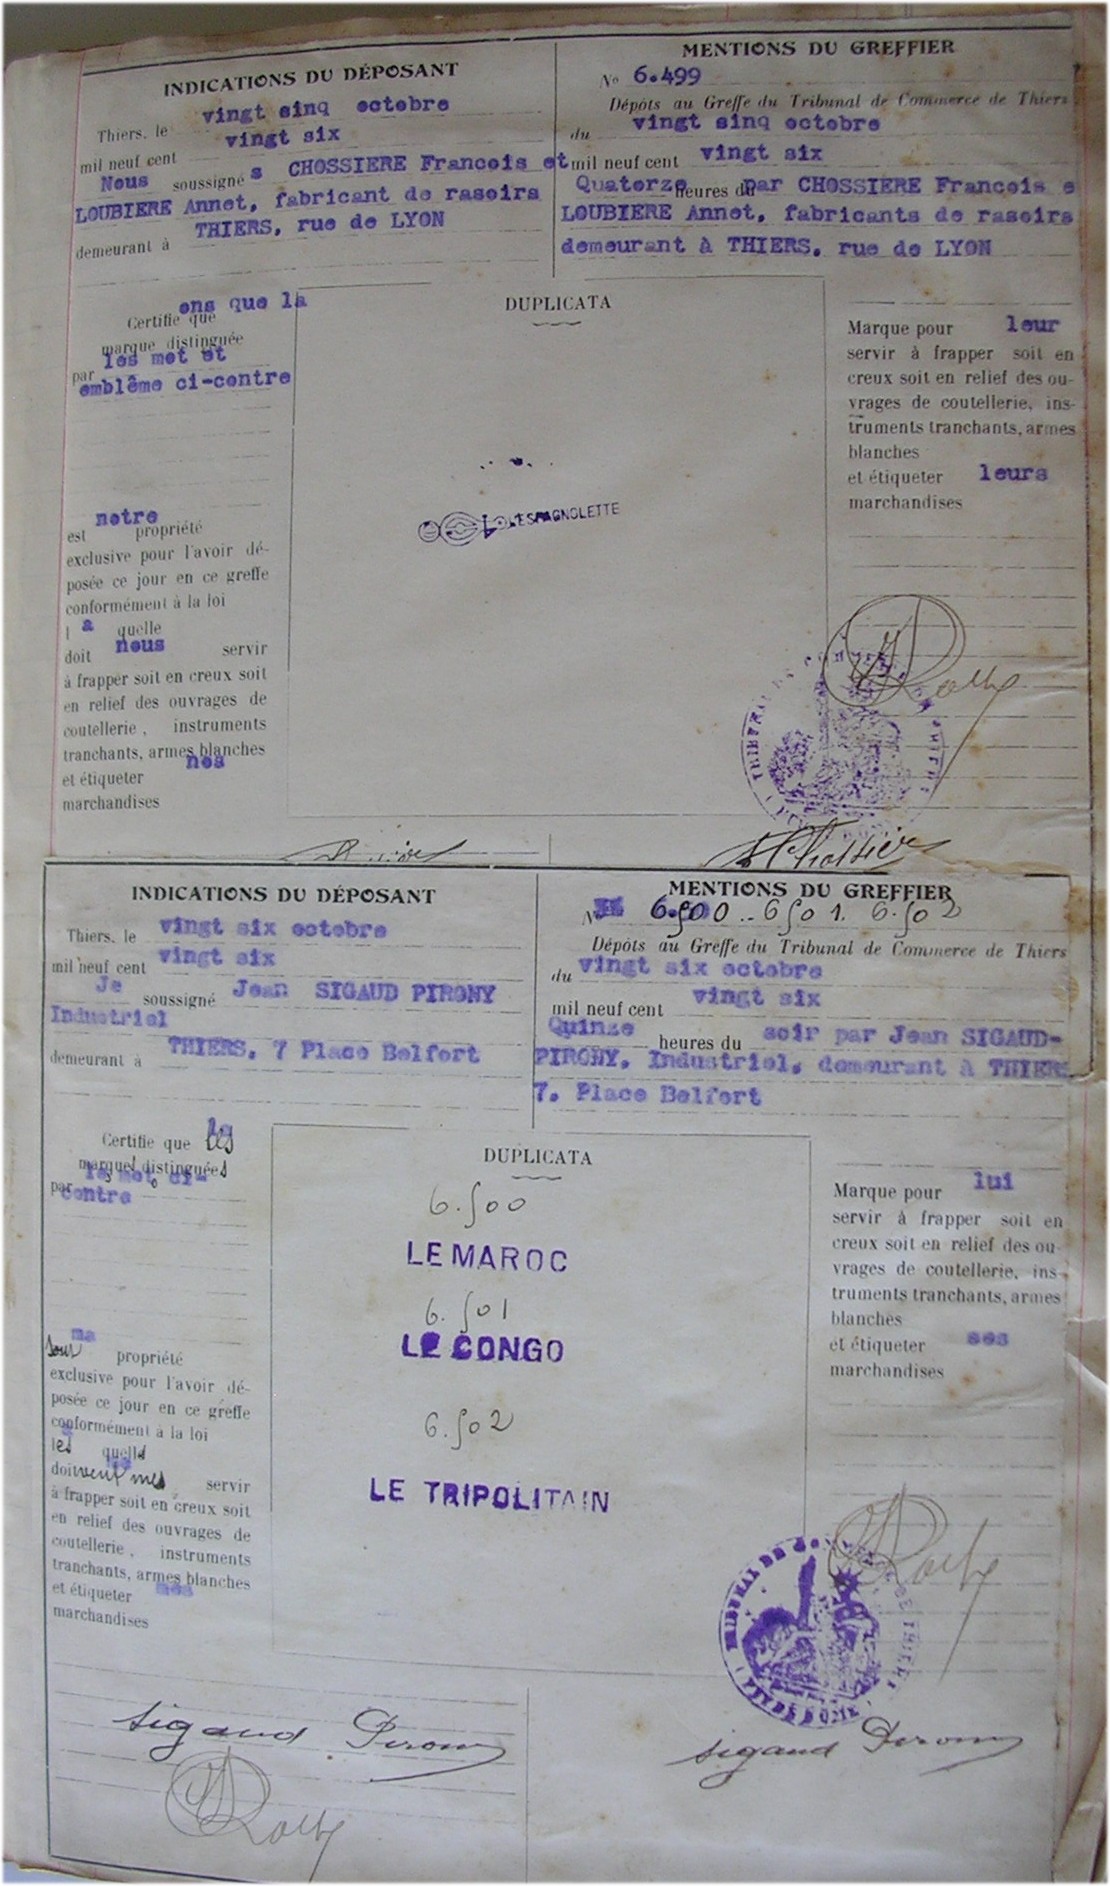 INDICATIONS DU DÉPOSANT
vingt sinq octobre
Thiers, le
vingt six
mil neuf cent
Nous soussigné s CHOSSIERE Francois et
LOUBIERE Annet, fabricant de rasoirs
THIERS, rue de LYON
demeurant à
MENTIONS DU GREFFIER
No 6.499
Dépôts au Greffe du Tribunal de Commerce de Thiers
du vingt sinq octobre
mil neuf cent vingt six
Quatorze heures du par CHOSSIERE Francois e
LOUBIERE Annet, fabricants de rasoirs
demeurant à THIERS, rue de LYON
ons que la
Certifie que
marque distinguée
les mot et
par
emblême ci-contre
notre
est propriété
exclusive pour l'avoir dé-
posée ce jour en ce greffe
conformément à la loi
l a quelle
doit nous servir
à frapper soit en creux soit
en relief des ouvrages de
coutellerie, instruments
tranchants, armes blanches
nos
et étiqueter
marchandises
DUPLICATA
L'ESPAGNOLETTE
Marque pour leur
servir à frapper soit en
creux soit en relief des ou-
vrages de coutellerie, ins-
truments tranchants, armes
blanches
et étiqueter leurs
marchandises
Roche
Chossière
INDICATIONS DU DÉPOSANT
Thiers, le vingt six octobre
mil neuf cent vingt six
Je soussigné Jean SIGAUD PIRONY
Industriel
demeurant à THIERS, 7 Place Belfort
MENTIONS DU GREFFIER
N 6.500 .. 6501. 6.502
Dépôts au Greffe du Tribunal de Commerce de Thiers
du vingt six octobre
mil neuf cent vingt six
Quinze heures du soir par Jean SIGAUD-
PIRONY, Industriel, demeurant à THIERS
7, Place Belfort
la
Certifie que les
marques distinguées
les mot ci-
par contre
ma
sont propriété
exclusive pour l'avoir dé-
posée ce jour en ce greffe
conformément à la loi
les quelles
doivent mes servir
à frapper soit en creux soit
en relief des ouvrages de
coutellerie, instruments
tranchants, armes blanches
et étiqueter mes
marchandises
DUPLICATA
6.500
LE MAROC
6.501
LE CONGO
6.502
LE TRIPOLITAIN
Marque pour lui
servir à frapper soit en
creux soit en relief des ou-
vrages de coutellerie, ins-
truments tranchants, armes
blanches
et étiqueter ses
marchandises
Roche
TRIBUNAL DE COMMERCE THIERS
(PUY DE DOME)
Sigaud Pirony
Sigaud Pirony
Roche